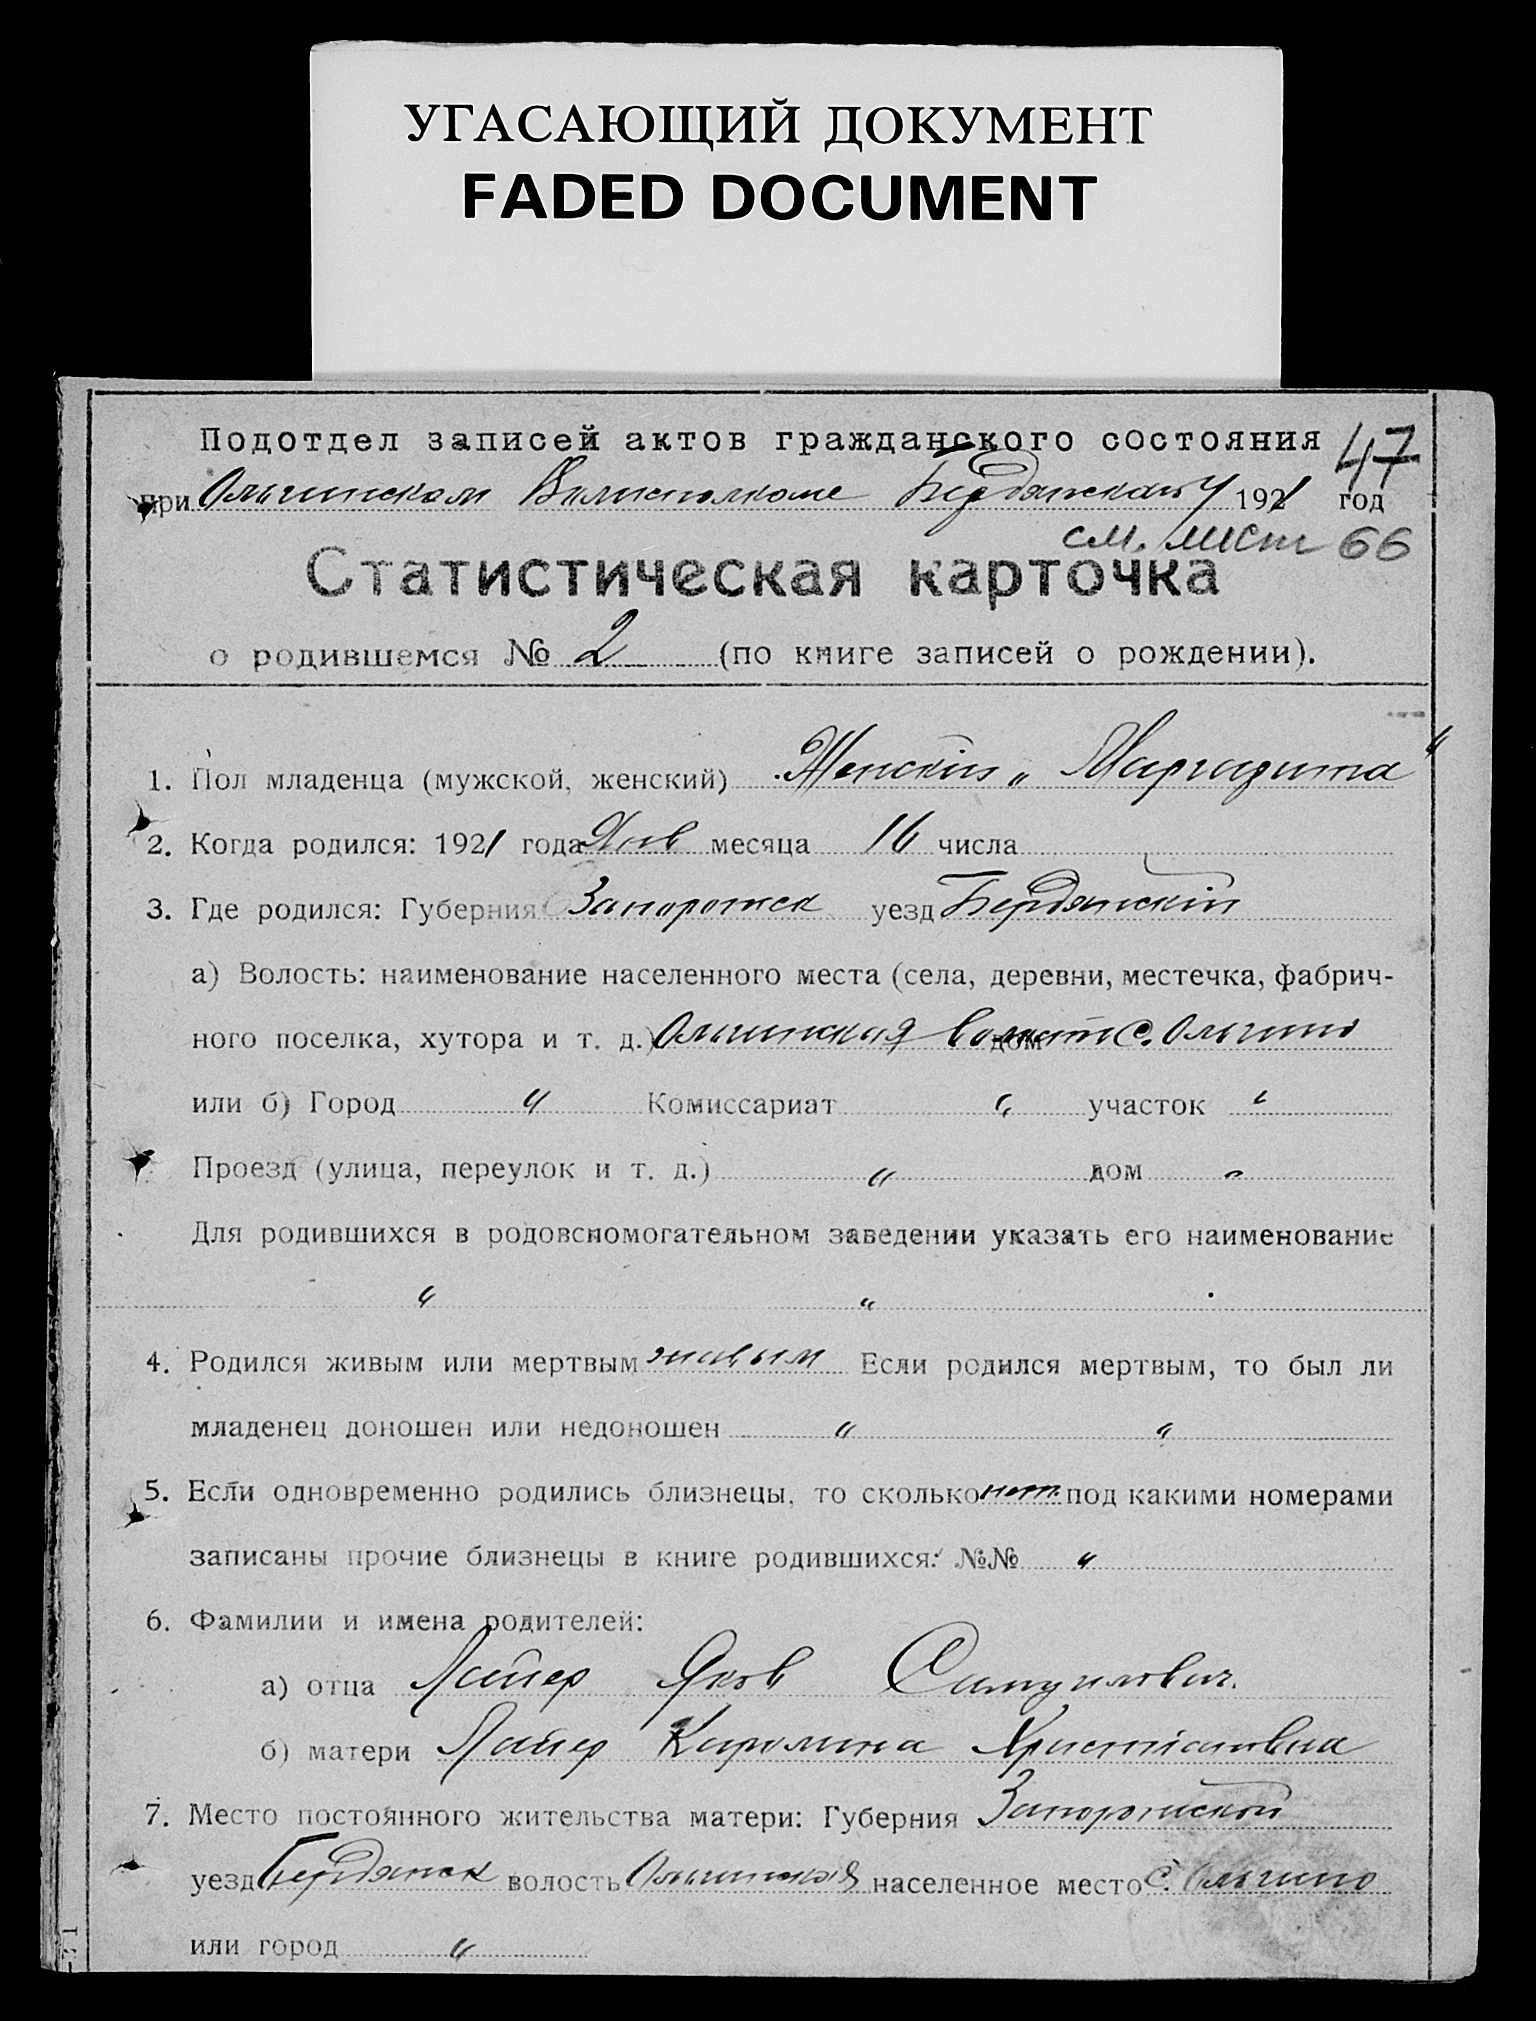 УГАСАЮЩИЙ ДОКУМЕНТ
FADED DOCUMENT
Подотдел записей актов гражданского состояния 47
при Ольгинском Волисполкоме Бердянского у 1921 год
см. лист 66
Статистическая карточка
о родившемся № 2 (по книге записей о рождении).
1. Пол младенца (мужской, женский) Женскiй „Маргарита“
2. Когда родился: 1921 года Янв месяца 16 числа
3. Где родился: Губерния Запорожск уезд Бердянскiй
а) Волость: наименование населенного места (села, деревни, местечка, фабрич-
ного поселка, хутора и т. д.) Ольгинская волость дом с. Ольгино
или б) Город " Комиссариат " участок "
Проезд (улица, переулок и т. д.) " дом "
Для родившихся в родовспомогательном заведении указать его наименование
" "
4. Родился живым или мертвым живым Если родился мертвым, то был ли
младенец доношен или недоношен " "
5. Если одновременно родились близнецы, то сколько нет. под какими номерами
записаны прочие близнецы в книге родившихся: №№ "
6. Фамилии и имена родителей:
а) отца Майер Яков Самуилович.
б) матери Майер Каролина Христiановна
7. Место постоянного жительства матери: Губерния Запорожской
уезд Бердянск волость Ольгинская населенное место с. Ольгино
или город "